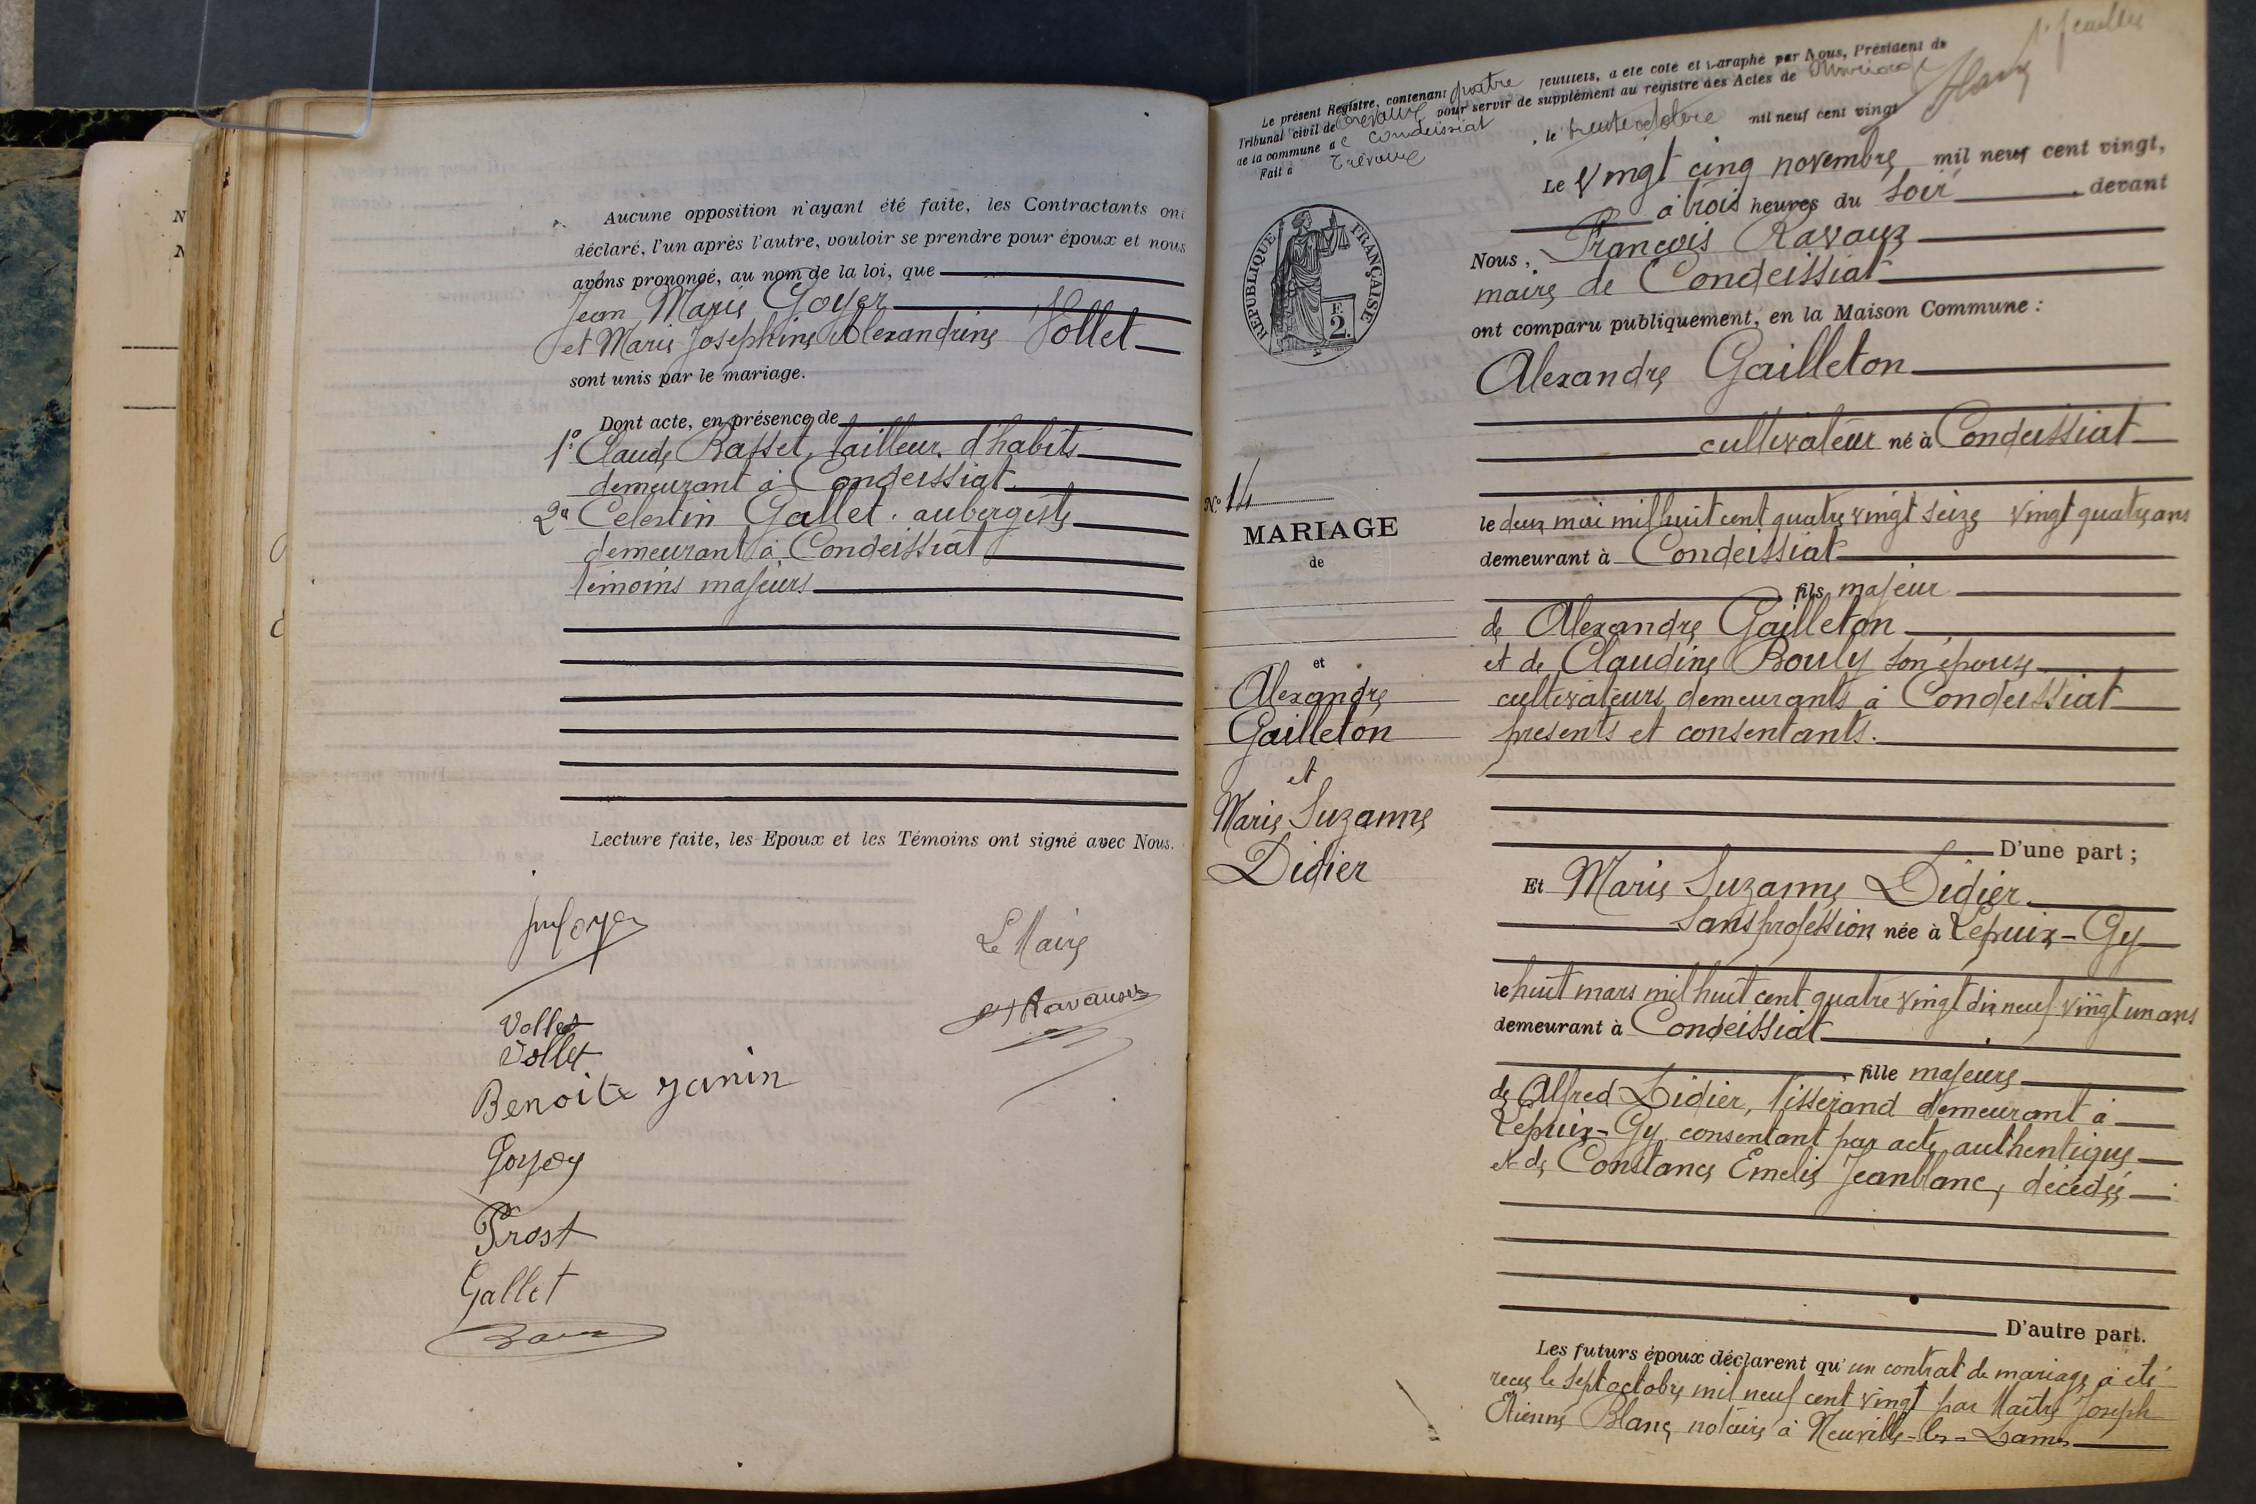 Aucune opposition n'ayant été faite, les Contractants ont
déclaré, l'un après l'autre, vouloir se prendre pour époux et nous
avons prononcé, au nom de la loi, que
Jean Marie Goyer
et Marie Josephine Alexandrine Vollet
sont unis par le mariage.
Dont acte, en présence de
1° Claude Raffet, tailleur d'habits
demeurant à Condeissiat.
2° Celestin Gallet. aubergiste
demeurant à Condeissiat
témoins majeurs
Lecture faite, les Epoux et les Témoins ont signé avec Nous.
Le Maire
Ravaux
Vollet
Vollet
Benoite Janin
Goyer
Prost
Gallet
Le présent Registre, contenant quatre feuillets, a été coté et paraphé par Nous, Président du
Tribunal civil de Trévoux pour servir de supplément au registre des Actes de Mariage
de la commune de Condeissiat
Fait à Trévoux, le trente octobre mil neuf cent vingt
1er feuillet
Le vingt cinq novembre mil neuf cent vingt,
à trois heures du soir, devant
Nous, François Ravaux
maire de Condeissiat
ont comparu publiquement, en la Maison Commune :
RÉPUBLIQUE FRANÇAISE
F.
2.
Alexandre Gailleton
cultivateur né à Condeissiat
le deux mai mil huit cent quatre vingt seize vingt quatre ans
demeurant à Condeissiat
fils majeur
de Alexandre Gailleton
et de Claudine Bouly son épouse
cultivateurs demeurants à Condeissiat
présents et consentants.
D'une part ;
N° 14
MARIAGE
de
et
Alexandre
Gailleton
et
Marie Suzanne
Didier
Et Marie Suzanne Didier
sans profession née à Lepuix-Gy
le huit mars mil huit cent quatre vingt dix neuf vingt un ans
demeurant à Condeissiat
, fille majeure
de Alfred Didier, tisserand demeurant à
Lepuix-Gy consentant par acte authentique
et de Constance Emelie Jeanblanc, décédée
D'autre part.
Les futurs époux déclarent qu'un contrat de mariage a été
reçu le sept octobre mil neuf cent vingt par Maître Joseph
Etienne Blanc notaire à Neuville-les-Dames